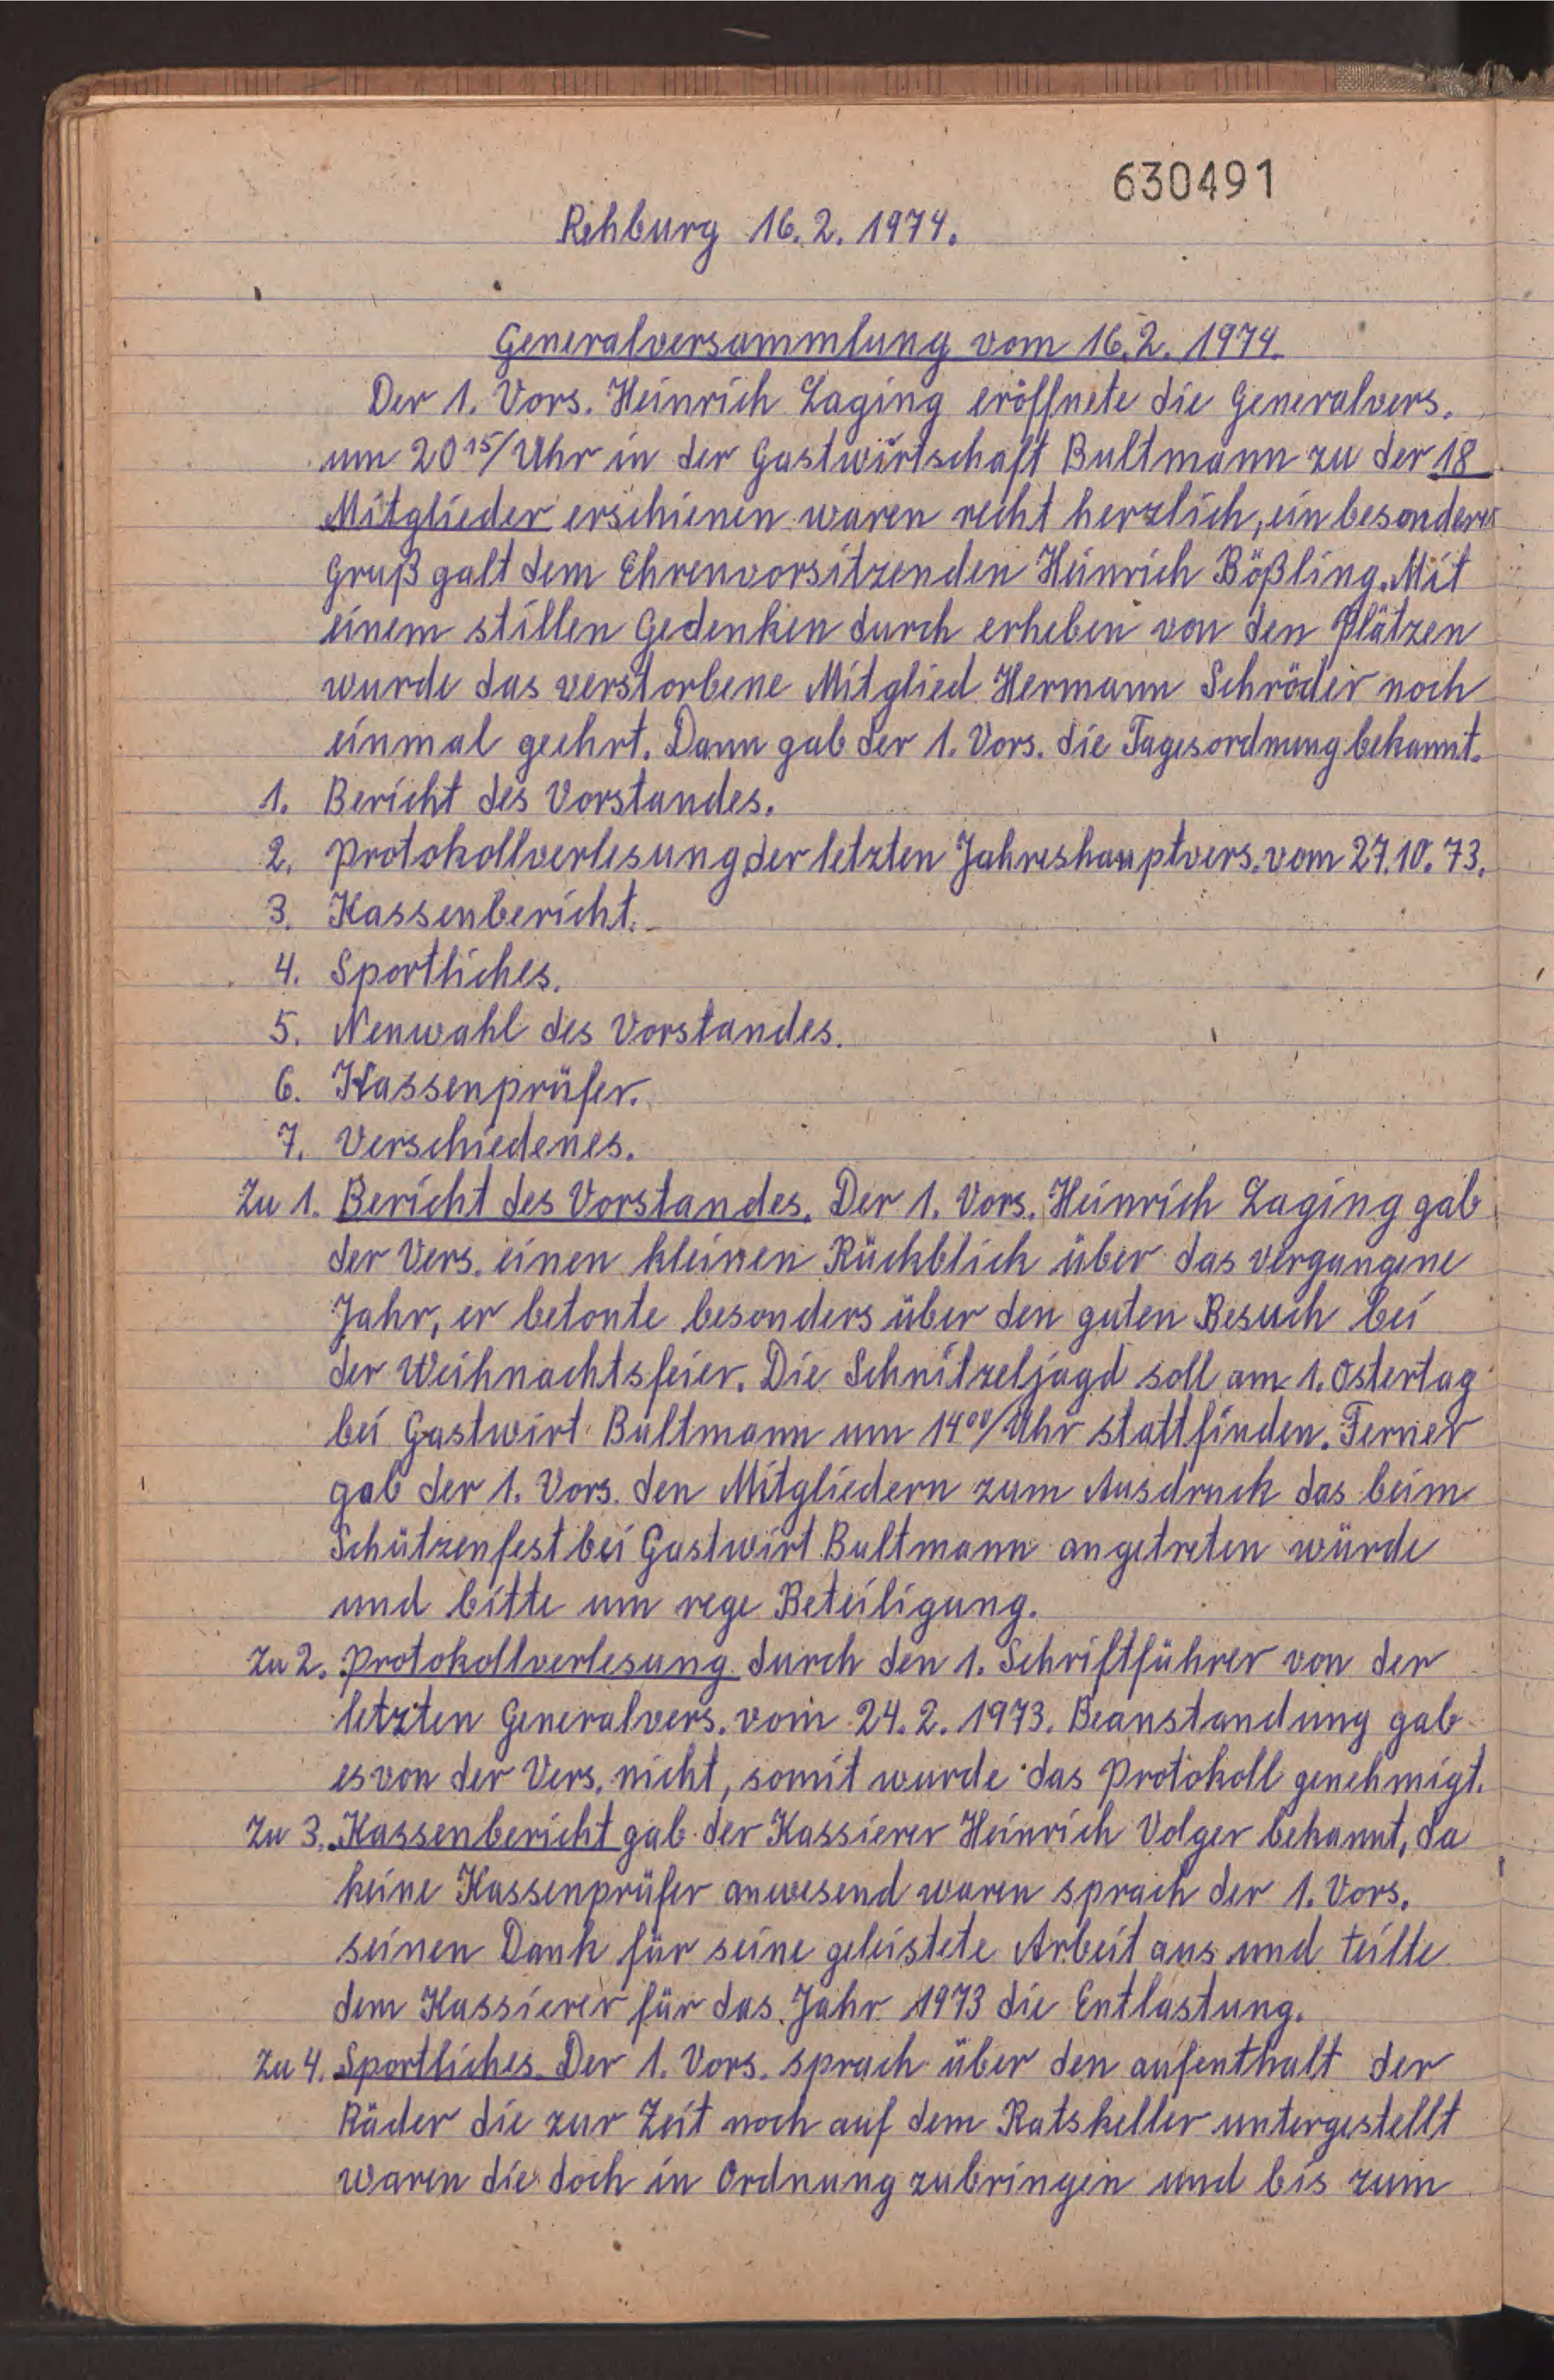 630491
Rehburg 16.2.1974.
Generalversammlung vom 16.2.1974.
Der 1. Vors. Heinrich Laging eröffnete die Generalvers.
um 20¹⁵/Uhr in der Gastwirtschaft Bultmann zu der 18
Mitglieder erschienen waren recht herzlich, ein besonderer
Gruß galt dem Ehrenvorsitzenden Heinrich Bößling. Mit
einem stillen Gedenken durch erheben von den Plätzen
wurde das verstorbene Mitglied Hermann Schröder noch
einmal geehrt. Dann gab der 1. Vors. die Tagesordnung bekannt.
1. Bericht des Vorstandes.
2. Protokollverlesung der letzten Jahreshauptvers. vom 27.10.73.
3. Kassenbericht.
4. Sportliches.
5. Neuwahl des Vorstandes.
6. Kassenprüfer.
7. Verschiedenes.
Zu 1. Bericht des Vorstandes. Der 1. Vors. Heinrich Laging gab
der Vers. einen kleinen Rückblick über das vergangene
Jahr, er betonte besonders über den guten Besuch bei
der Weihnachtsfeier. Die Schnitzeljagd soll am 1. Ostertag
bei Gastwirt Bultmann um 14⁰⁰/Uhr stattfinden. Ferner
gab der 1. Vors. den Mitgliedern zum Ausdruck das beim
Schützenfest bei Gastwirt Bultmann angetreten würde
und bitte um rege Beteiligung.
Zu 2. Protokollverlesung durch den 1. Schriftführer von der
letzten Generalvers. vom 24.2.1973. Beanstandung gab
es von der Vers. nicht, somit wurde das Protokoll genehmigt.
Zu 3. Kassenbericht gab der Kassierer Heinrich Volger bekannt, da
keine Kassenprüfer anwesend waren sprach der 1. Vors.
seinen Dank für seine geleistete Arbeit aus und teilte
dem Kassierer für das Jahr 1973 die Entlastung.
Zu 4. Sportliches. Der 1. Vors. sprach über den aufenthalt der
Räder die zur Zeit noch auf dem Ratskeller untergestellt
waren die doch in Ordnung zubringen und bis zum